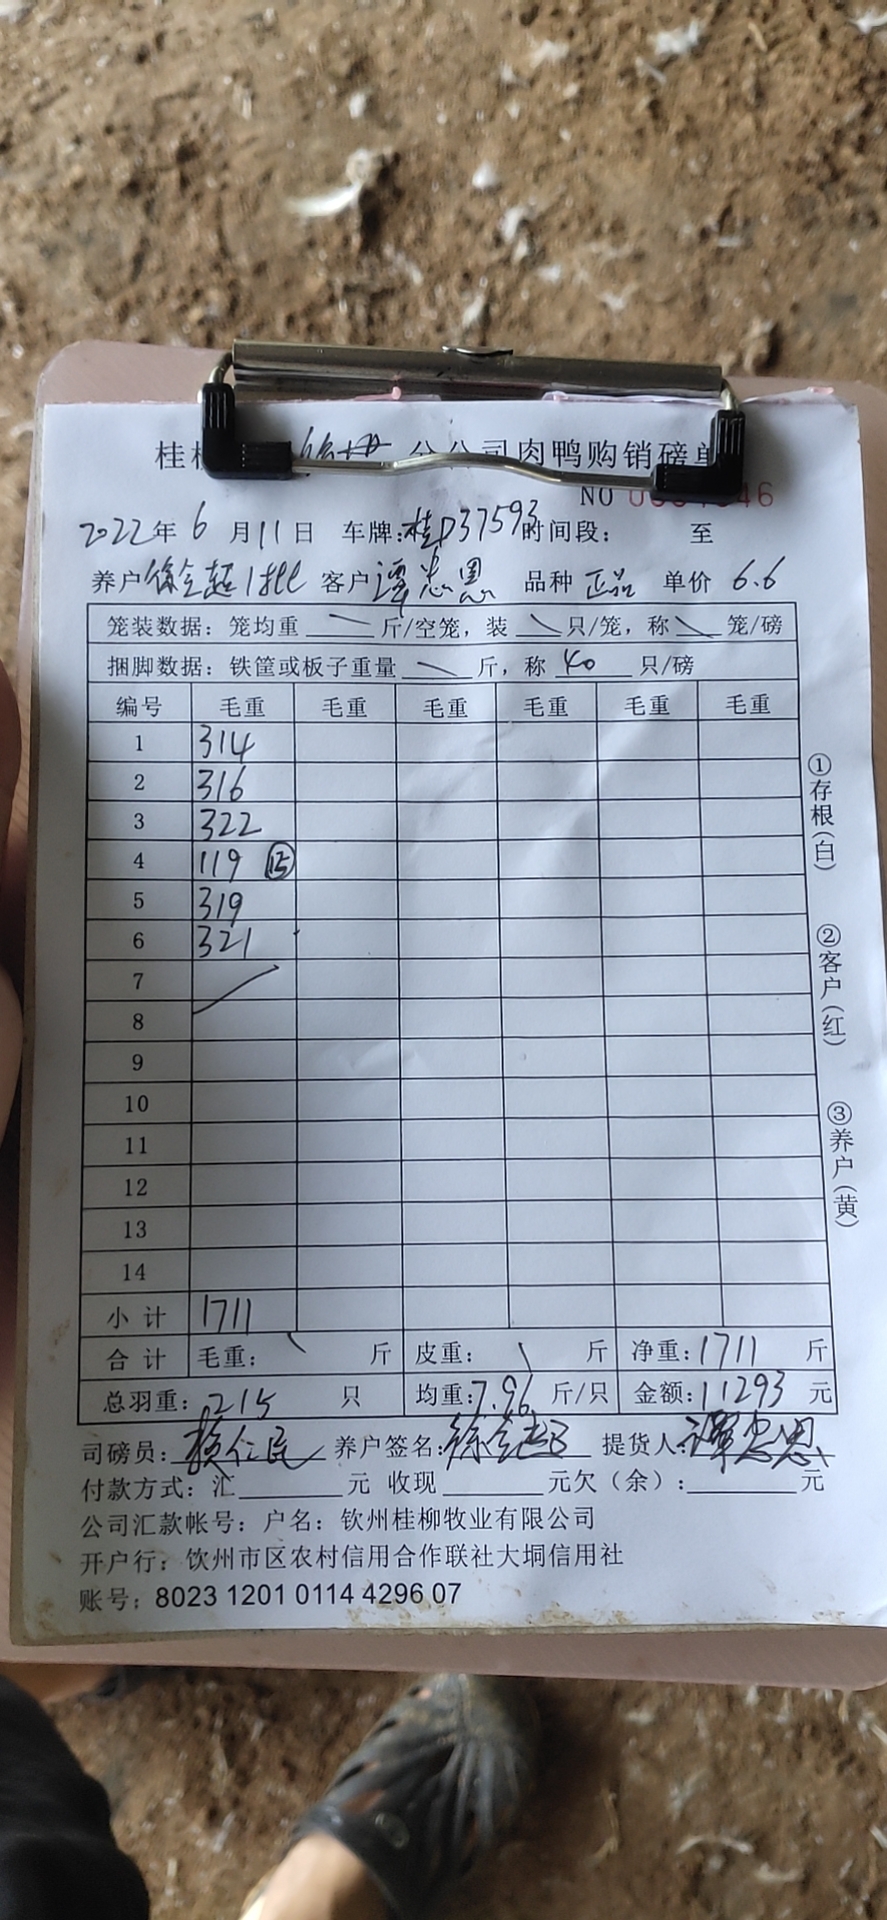 桂 分公司肉鸭购销磅单
NO 46
2022年 6 月 11 日 车牌:桂P37593 时间段: 至
养户 徐会超1批 客户 谭忠恩 品种 正品 单价 6.6
笼装数据: 笼均重 斤/空笼, 装 只/笼, 称 笼/磅
捆脚数据: 铁筐或板子重量 斤, 称 40 只/磅
编号 毛重 毛重 毛重 毛重 毛重 毛重
1 314
2 316
3 322
4 119 ⑮
5 319
6 321
7
8
9
10
11
12
13
14
小计 1711
合计 毛重: 斤 皮重: 斤 净重: 1711 斤
总羽重: 215 只 均重: 7.96 斤/只 金额: 11293 元
司磅员: 赖仁民 养户签名: 徐会超 提货人: 谭忠恩
付款方式: 汇 元 收现 元欠(余): 元
公司汇款帐号: 户名: 钦州桂柳牧业有限公司
开户行: 饮州市区农村信用合作联社大垌信用社
账号: 8023 1201 0114 4296 07
①存根(白)
②客户(红)
③养户(黄)